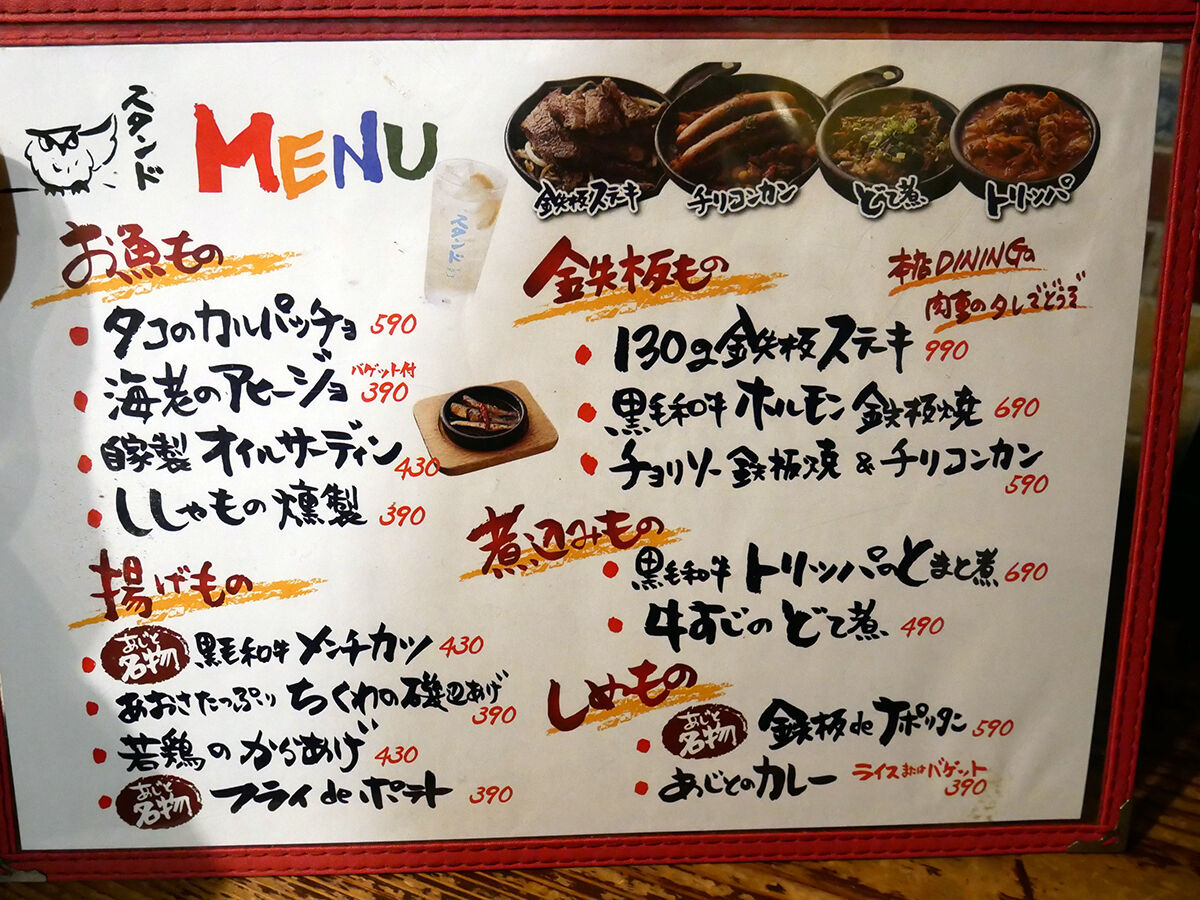 スタンド
MENU
鉄板ステキ
チリコンカン
どて煮
トリッパ
スタンド
お魚もの
タコのカルパッチョ 590
海老のアヒージョ バゲット付 390
自家製 オイルサーディン 430
ししゃもの燻製 390
揚げもの
あじと名物 黒毛和牛 メンチカツ 430
あおさたっぷり ちくわの磯辺あげ 390
若鶏のからあげ 430
あじと名物 フライdeポテト 390
鉄板もの
本店DINING
肉重のタレでどうぞ
130g鉄板ステーキ 990
黒毛和牛 ホルモン 鉄板焼 690
チョリソー 鉄板焼 & チリコンカン 590
煮込みもの
黒毛和牛 トリッパのとまと煮 690
牛すじのどて煮 490
しめもの
あじと名物 鉄板deナポリタン 590
あじとのカレー ライスまたはバゲット 390